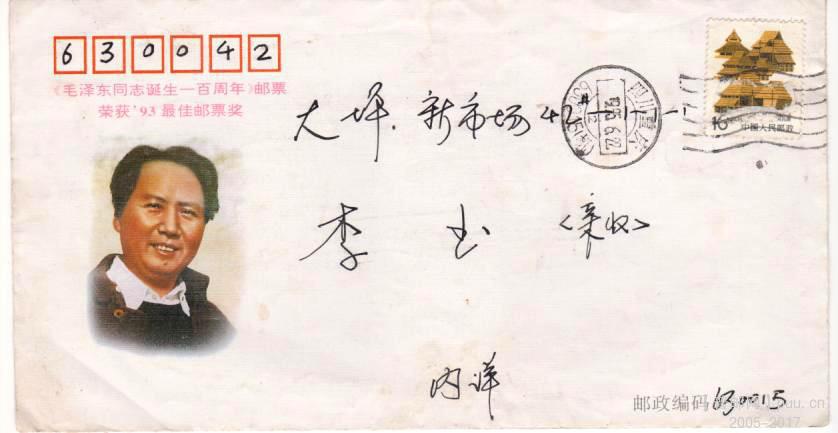 630042
《毛泽东同志诞生一百周年》邮票
荣获’93最佳邮票奖
大坪.新市场42#-1-7-1
李 玉 <亲收>
内详
邮政编码 630015
中国人民邮政
四川重庆
2005-2017